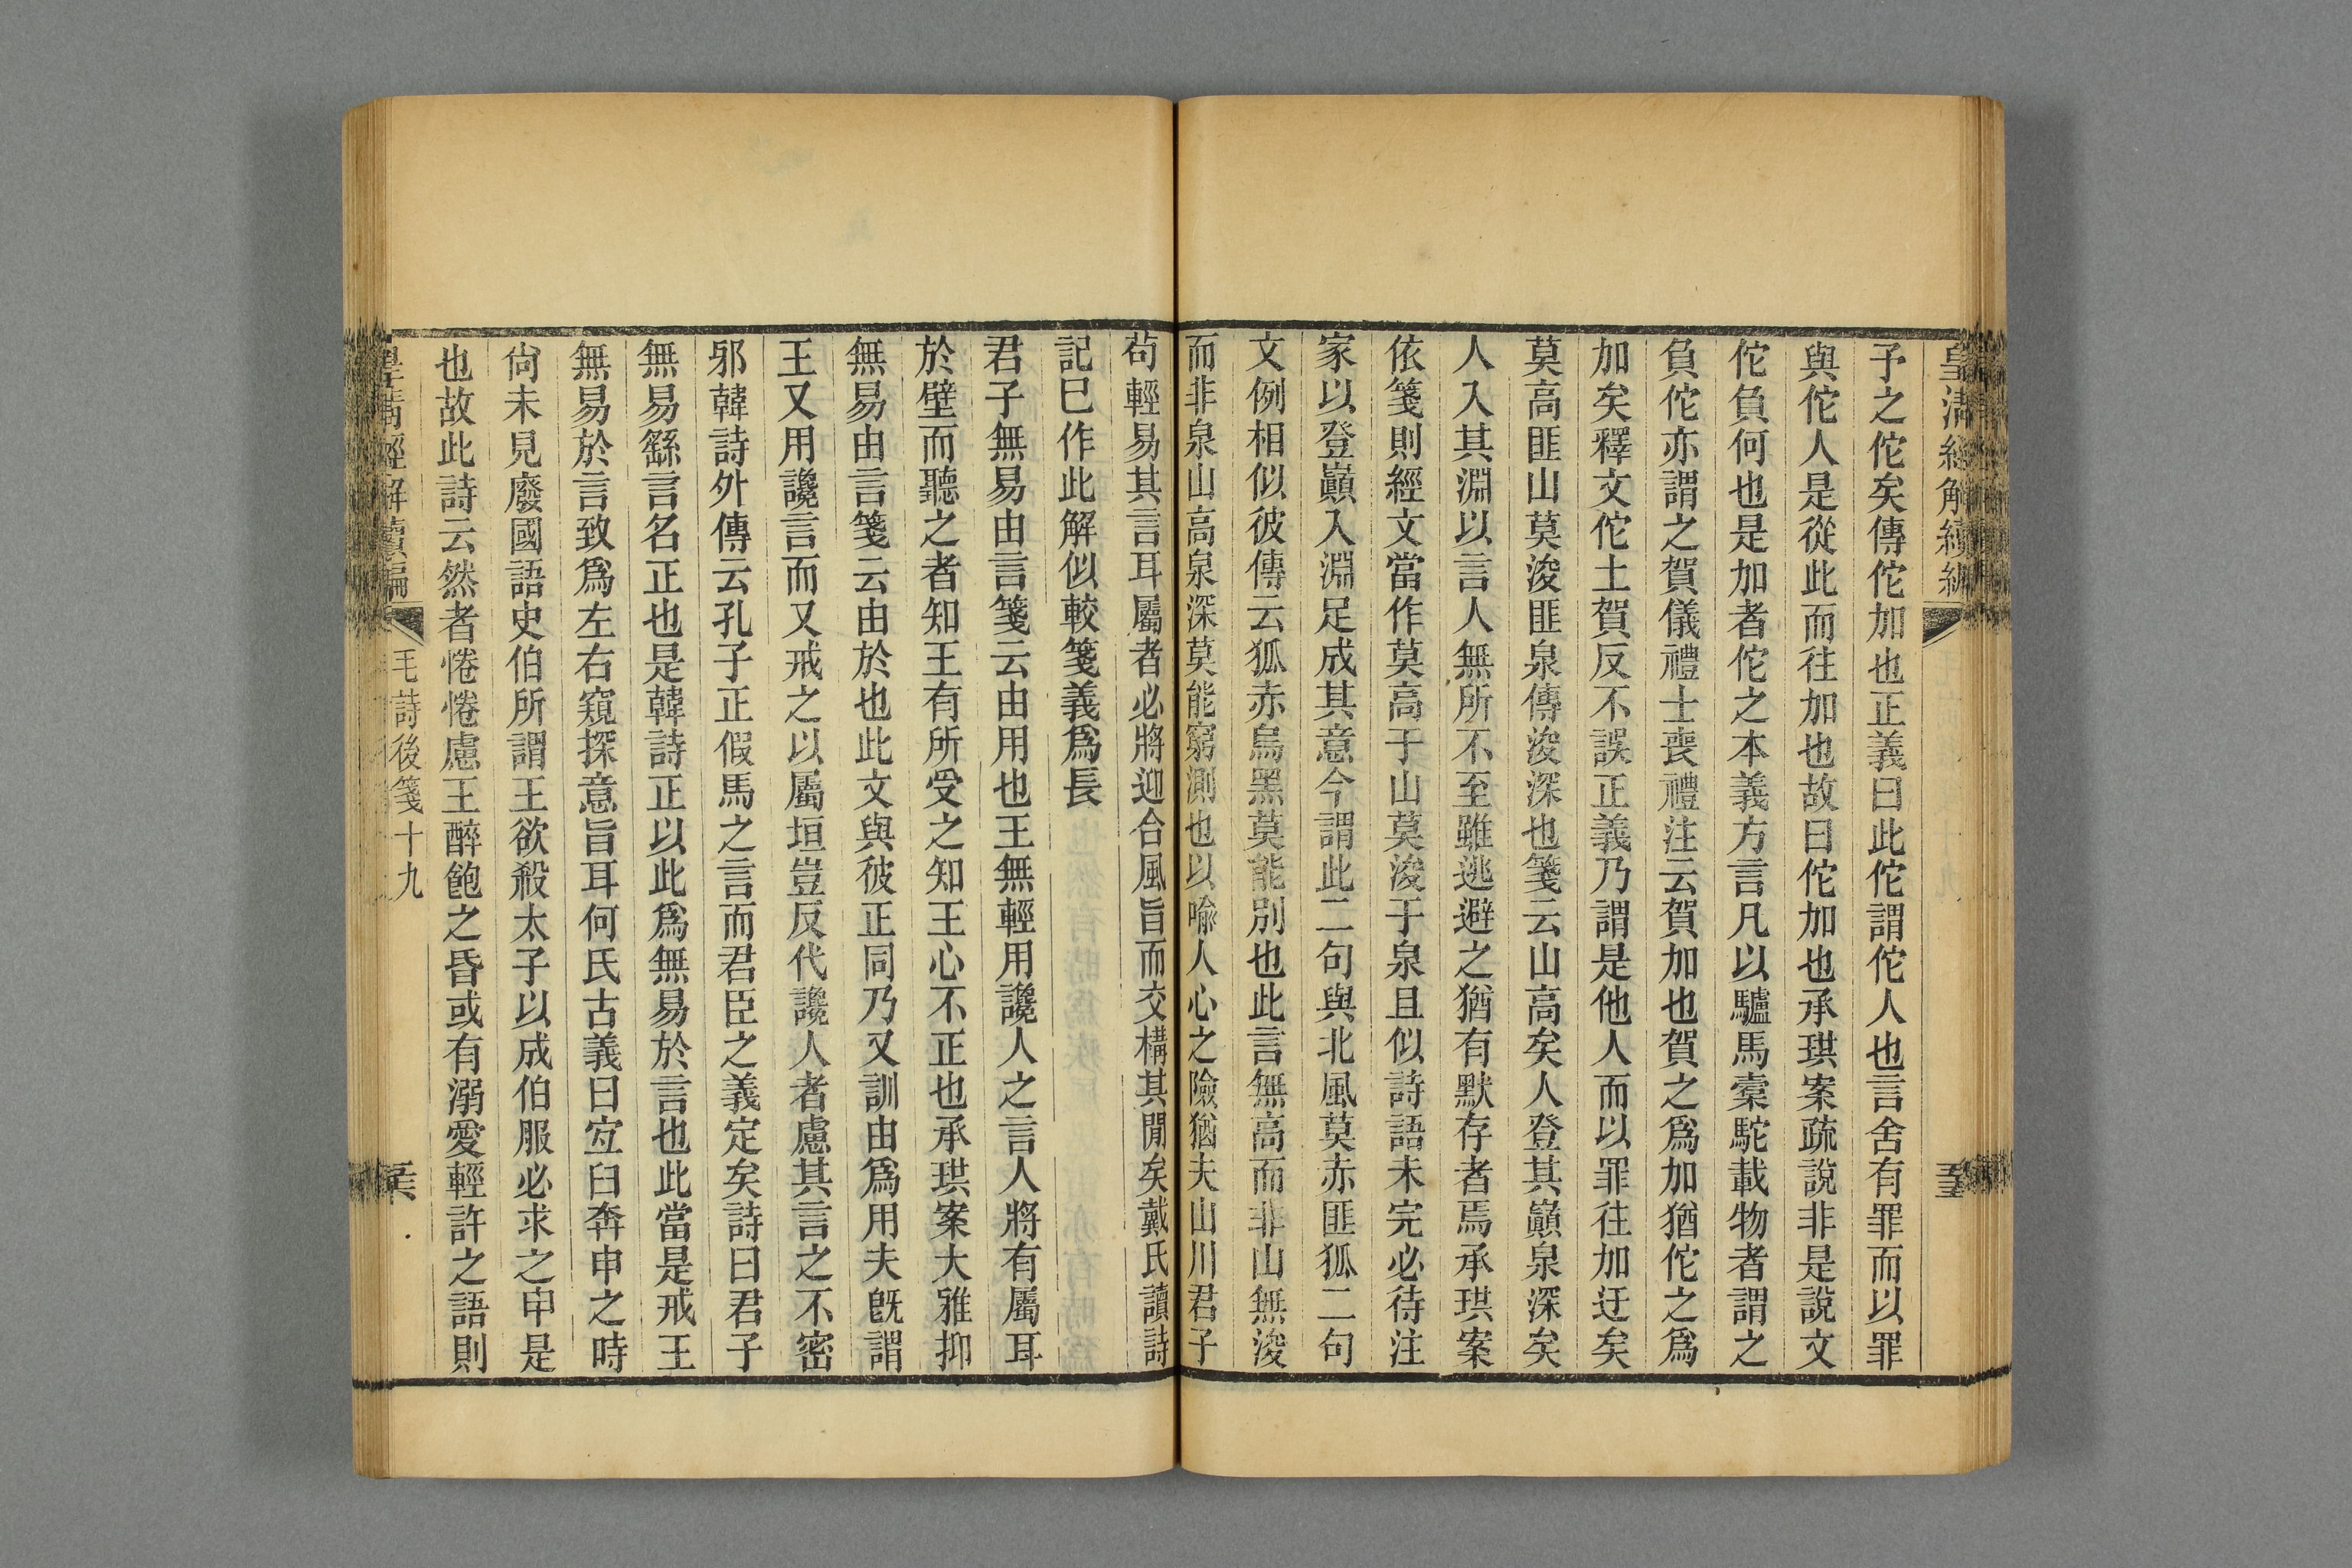 皇清經解續編
予之佗矣傳佗加也正義曰此佗謂佗人也言舍有罪而以罪
與佗人是從此而往加也故曰佗加也承珙案疏說非是說文
佗負何也是加者佗之本義方言凡以驢馬橐駝載物者謂之
負佗亦謂之賀儀禮士喪禮注云賀加也賀之爲加猶佗之爲
加矣釋文佗土賀反不誤正義乃謂是他人而以罪往加迂矣
莫高匪山莫浚匪泉傳浚深也箋云山高矣人登其巔泉深矣
人入其淵以言人無所不至雖逃避之猶有默存者焉承珙案
依箋則經文當作莫高于山莫浚于泉且似詩語未完必待注
家以登巔入淵足成其意今謂此二句與北風莫赤匪狐二句
文例相似彼傳云狐赤烏黑莫能別也此言無高而非山無浚
而非泉山高泉深莫能窮測也以喩人心之險猶夫山川君子
苟輕易其言耳屬者必將迎合風旨而交構其閒矣戴氏讀詩
記巳作此解似較箋義爲長
君子無易由言箋云由用也王無輕用讒人之言人將有屬耳
於壁而聽之者知王有所受之知王心不正也承珙案大雅抑
無易由言箋云由於也此文與彼正同乃又訓由爲用夫旣謂
王又用讒言而又戒之以屬垣豈反代讒人者慮其言之不密
邪韓詩外傳云孔子正假馬之言而君臣之義定矣詩曰君子
無易繇言名正也是韓詩正以此爲無易於言也此當是戒王
無易於言致爲左右窺探意旨耳何氏古義曰宐臼奔申之時
尙未見廢國語史伯所謂王欲殺太子以成伯服必求之申是
也故此詩云然者惓惓慮王醉飽之昏或有溺愛輕許之語則
皇清經解續編
毛詩後箋十九